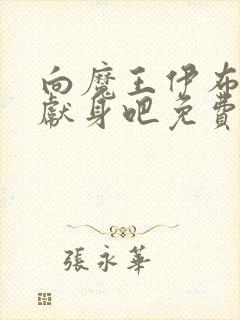 向魔王伊布
獻身吧免費
張永華